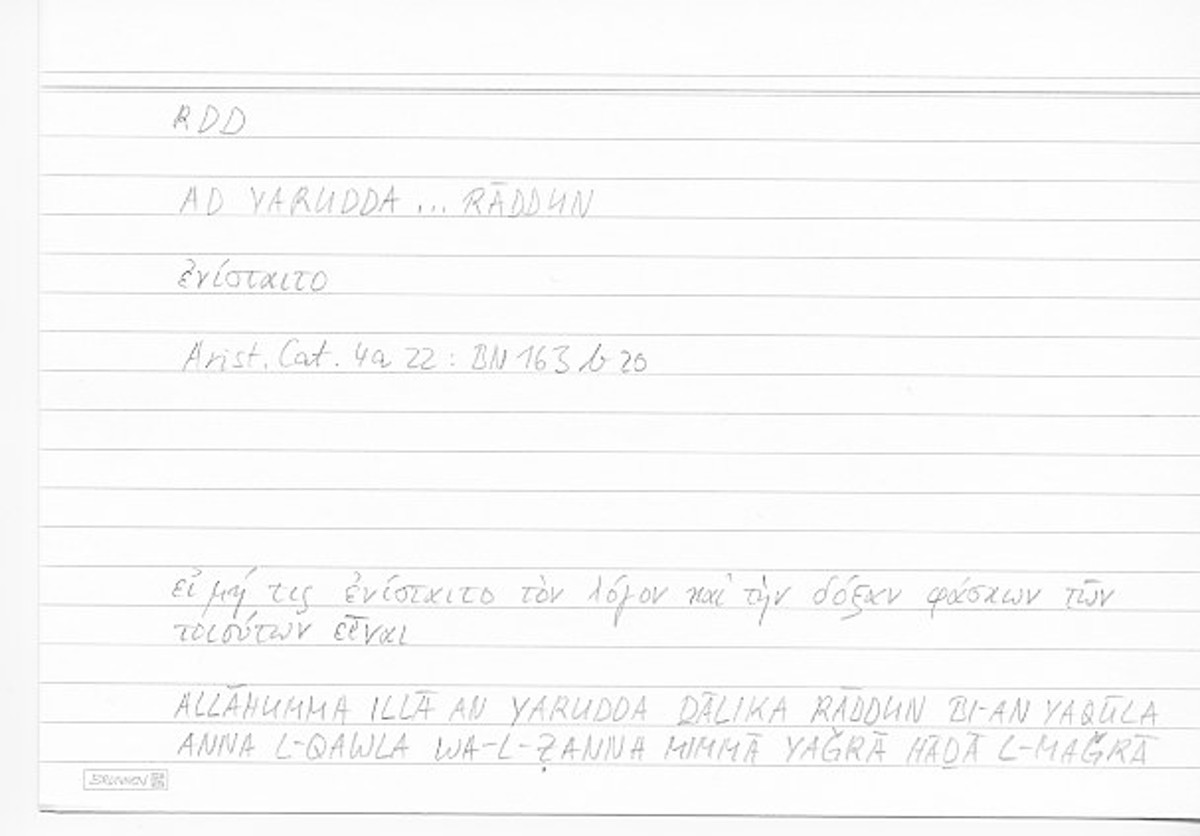 RDD
AD YARUDDA ... RĀDDUN
ἐνίσταιτο
Arist. Cat. 4a 22 : BN 163 b 20
εἰ μή τις ἐνίσταιτο τὸν λόγον καὶ τὴν δόξαν φάσκων τῶν
τοιούτων εἶναι
ALLĀHUMMA ILLĀ AN YARUDDA ḎĀLIKA RĀDDUN BI-AN YAQŪLA
ANNA L-QAWLA WA-L-ẒANNA MIMMĀ YAǦRĀ HĀḎĀ L-MAǦRĀ
BRUNNEN